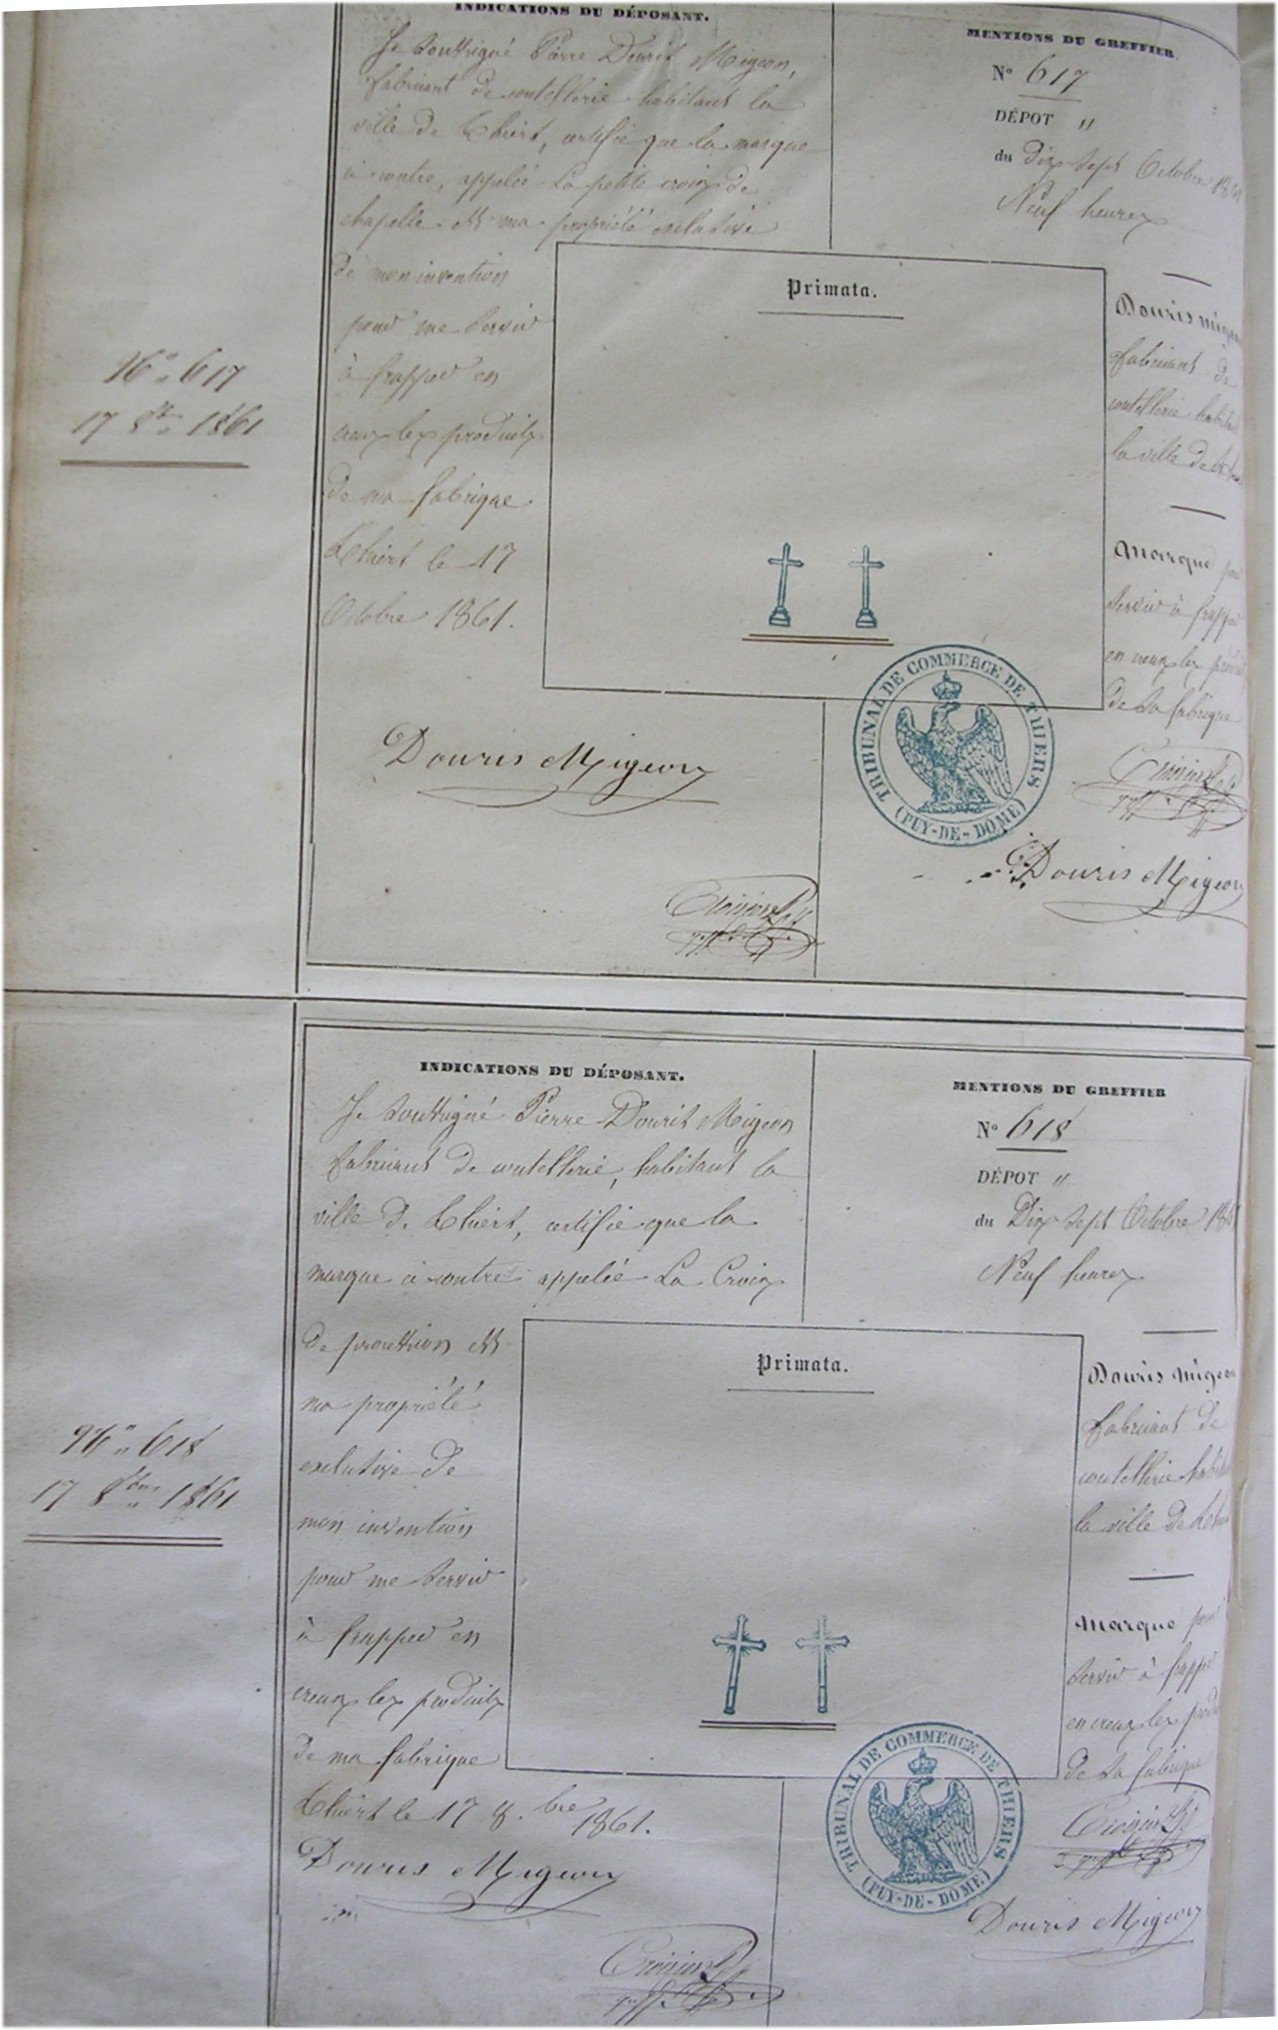 INDICATIONS DU DÉPOSANT.
Je soussigné Pierre Douris Migeon,
fabricant de coutellerie habitant la
ville de Thiers, certifie que la marque
ci contre, appelée La petite croix de
chapelle est ma propriété exclusive
de mon invention
pour me servir
à frapper en
creux les produits
de ma fabrique
Thiers le 17
Octobre 1861.
Douris Migeon
MENTIONS DU GREFFIER
N° 617
DÉPOT "
du Dix sept Octobre 1861
Neuf heures
Primata.
Douris Migeon
fabricant de
coutellerie
la ville de
Marque pour
servir à frapper
en creux les
de sa fabrique
TRIBUNAL DE COMMERCE DE THIERS
(PUY-DE-DOME)
Douris Migeon
N° 617
17 8bre 1861
INDICATIONS DU DÉPOSANT.
Je soussigné Pierre Douris Migeon
fabricant de coutellerie, habitant la
ville de Thiers, certifie que la
marque ci contre appelée La Croix
de procession est
ma propriété
exclusive de
mon invention
pour me servir
à frapper en
creux les produits
de ma fabrique
Thiers le 17 8.bre 1861.
Douris Migeon
MENTIONS DU GREFFIER
N° 618
DÉPOT "
du Dix sept Octobre 1861
Neuf heures
Primata.
Douris Migeon
fabricant de
coutellerie
la ville de
Marque pour
servir à frapper
en creux les
de sa fabrique
TRIBUNAL DE COMMERCE DE THIERS
(PUY-DE-DOME)
Douris Migeon
N° 618
17 8bre 1861